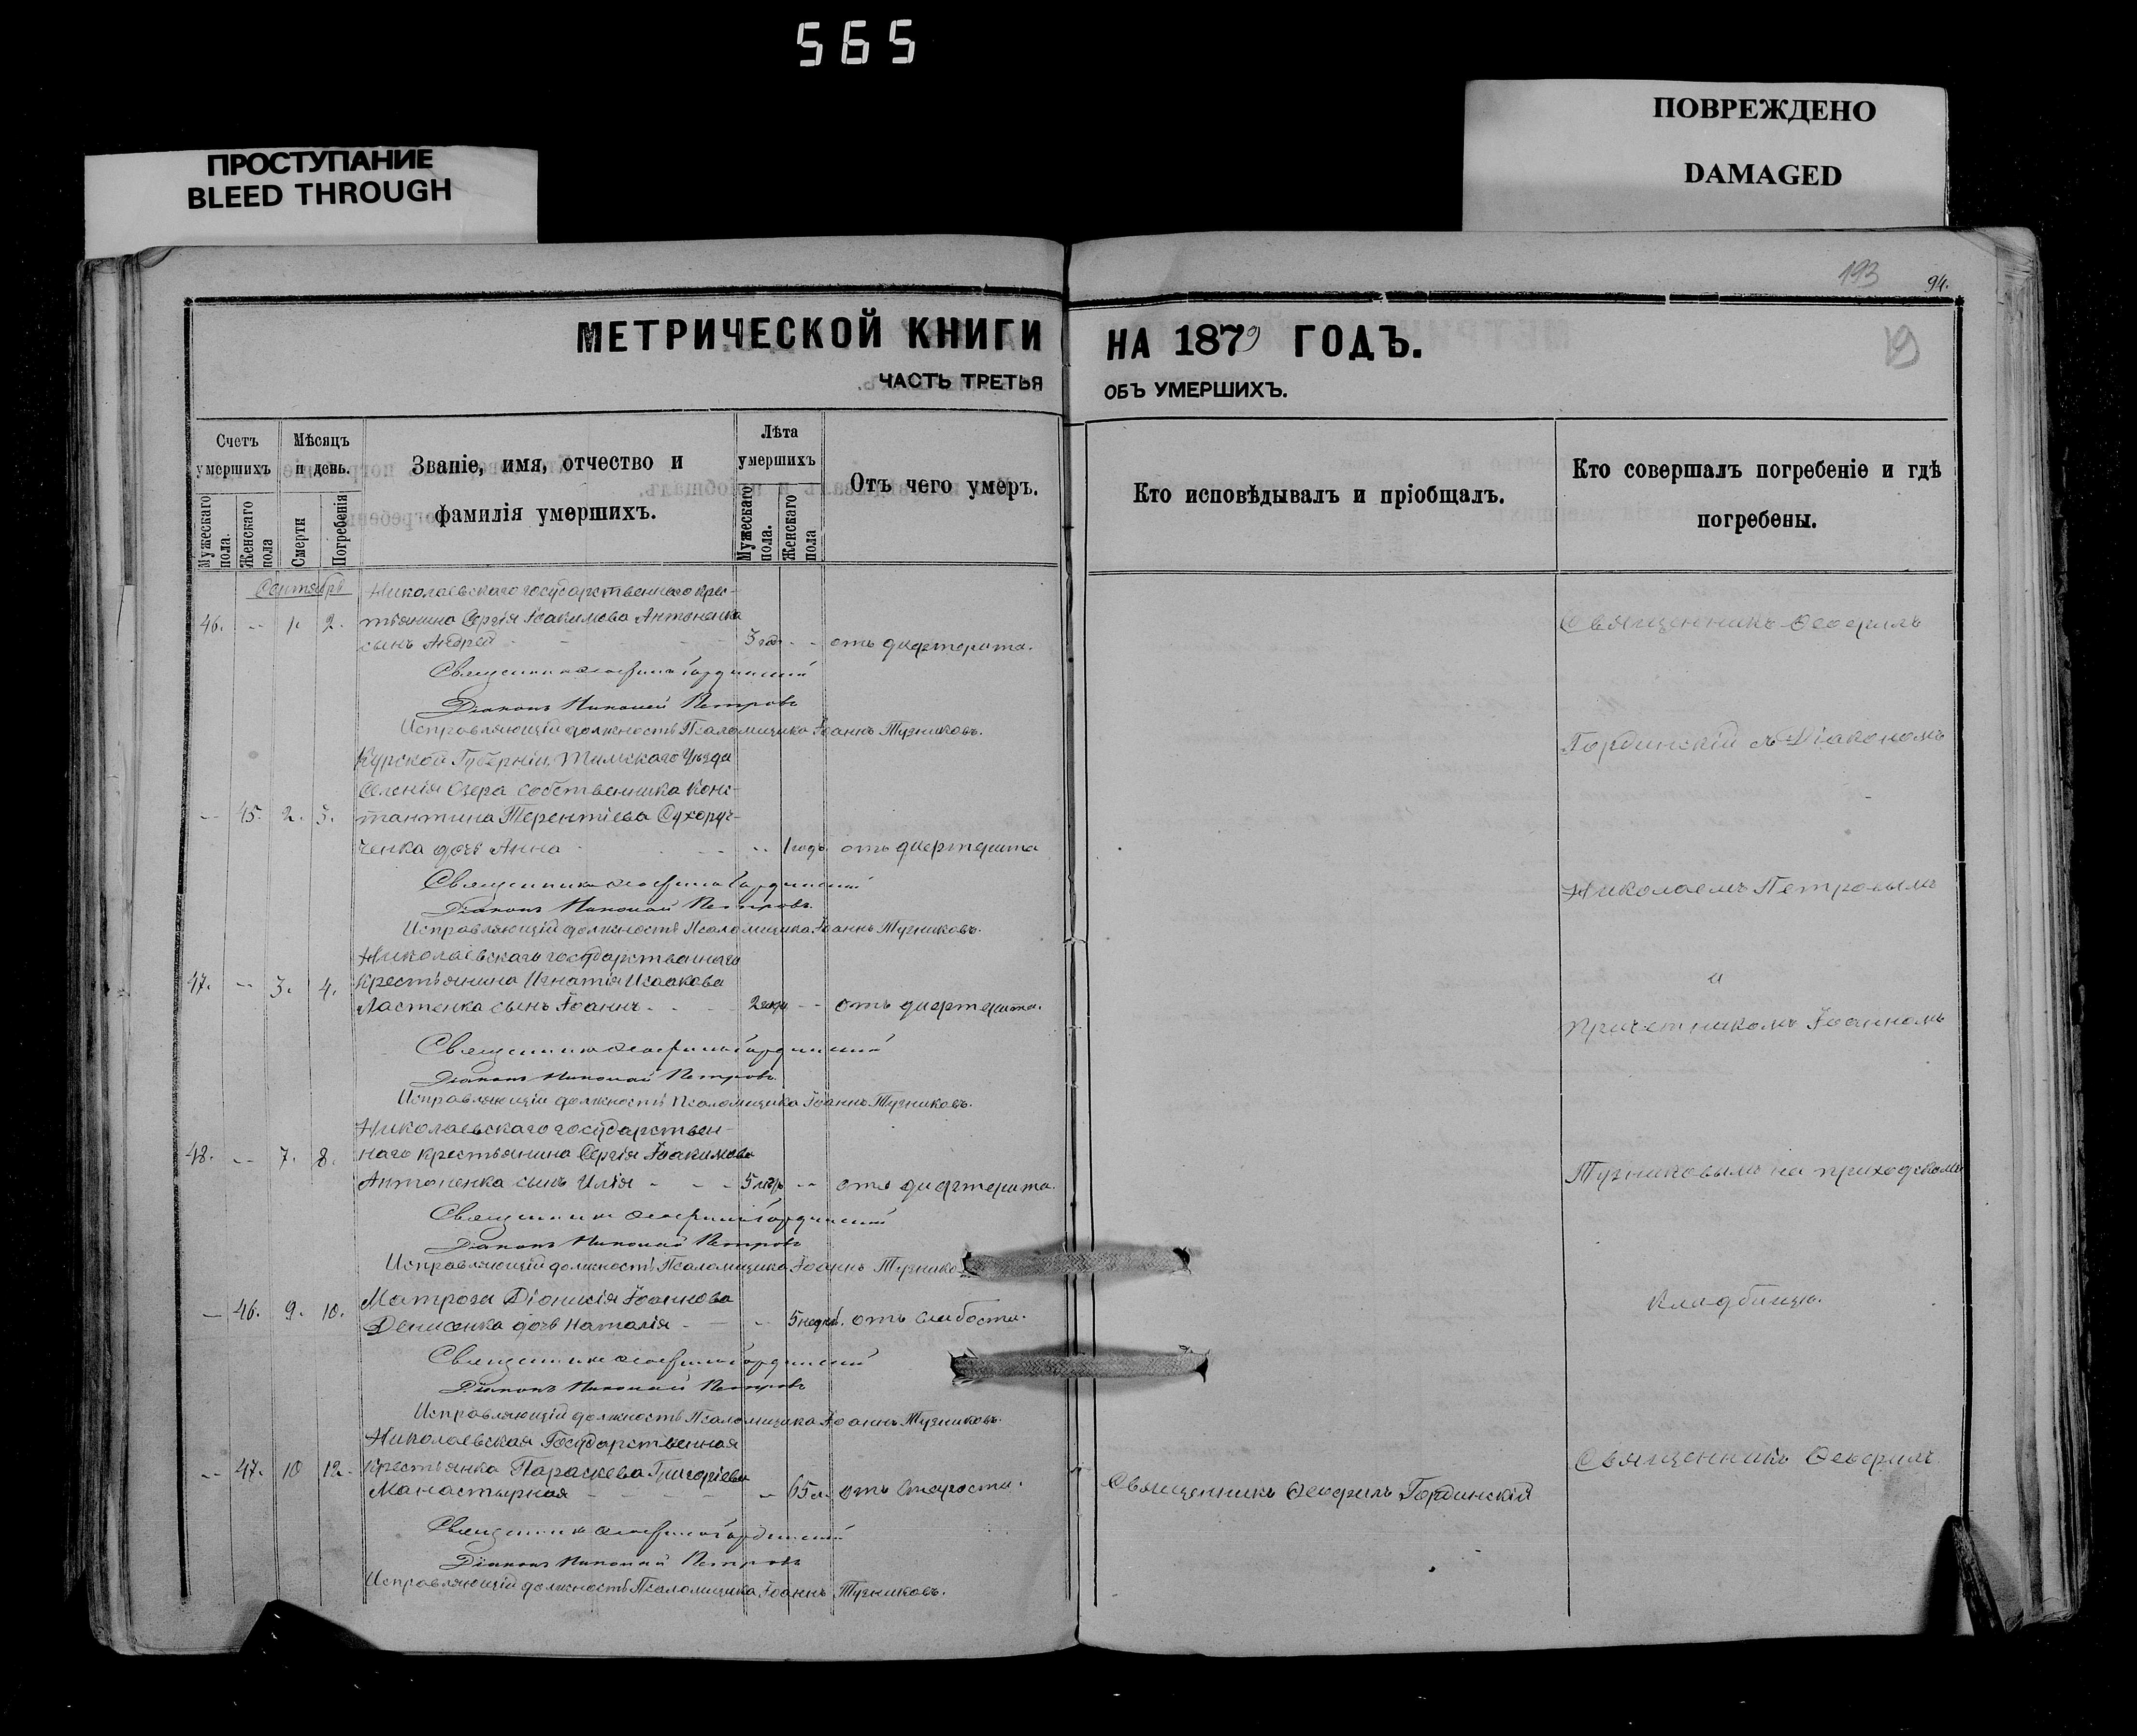 565
ПРОСТУПАНИЕ
BLEED THROUGH
ПОВРЕЖДЕНО
DAMAGED
193
94.
МЕТРИЧЕСКОЙ КНИГИ НА 1879 ГОДЪ.
ЧАСТЬ ТРЕТЬЯ ОБЪ УМЕРШИХЪ.
19
Счетъ умершихъ
Мужескаго пола.
Женскаго пола
Мѣсяцъ и день.
Смерти
Погребенія
Званіе, имя, отчество и
фамилія умершихъ.
Лѣта умершихъ
Мужескаго пола.
Женскаго пола
Отъ чего умеръ.
Кто исповѣдывалъ и пріобщалъ.
Кто совершалъ погребеніе и гдѣ
погребены.
Сентябрь
Николаевскаго государственнаго крес-
46. -- 1. 2. тьянина Сергія Іоакимова Антоненка
сынъ Андрей - - - -- отъ дифтерита.
Священникъ Ѳеофилъ Гординскій
Діаконъ Николай Петровъ
Исправляющій должность Псаломщика Іоаннъ Тузниковъ.
Курской Губерніи, Тимскаго Уѣзда
Селенія Озера собственника Конс-
-- 45. 2. 3. тантина Терентіева Сухору-
ченка дочь Анна - - - -- 1 годъ отъ дифтерита
Священникъ Ѳеофилъ Гординскій
Діаконъ Николай Петровъ.
Исправляющій должность Псаломщика Іоаннъ Тузниковъ.
Николаевскаго государственнаго
47. -- 3. 4. крестьянина Игнатія Исаакова
Ластенка сынъ Іоаннъ - - - 2 года -- отъ дифтерита.
Священникъ Ѳеофилъ Гординскій
Діаконъ Николай Петровъ.
Исправляющій должность Псаломщика Іоаннъ Тузниковъ.
Николаевскаго государствен-
48. -- 7. 8. наго крестьянина Сергія Іоакимова
Антоненка сынъ Илія - - - 5 лѣтъ -- отъ дифтерита.
Священникъ Ѳеофилъ Гординскій
Діаконъ Николай Петровъ
Исправляющій должность Псаломщика Іоаннъ Тузнико
Матроса Діонисія Іоаннова
-- 46. 9. 10. Денисенка дочь Наталія - - -- 5 недѣл. отъ слабости.
Священникъ Ѳеофилъ Гординскій
Діаконъ Николай Петровъ
Исправляющій должность Псаломщика Іоаннъ Тузниковъ.
Николаевская Государственная
-- 47. 10 12. крестьянка Параскева Григоріева
Манастырная - - - - -- 65 л. отъ старости.
Священникъ Ѳеофилъ Гординскій
Священникъ Ѳеофилъ Гординскій
Діаконъ Николай Петровъ
Исправляющій должность Псаломщика Іоаннъ Тузниковъ.
Священникъ Ѳеофилъ
Гординскій съ Діакономъ
Николаемъ Петровымъ
и
Причетникомъ Іоанномъ
Тузниковымъ на приходскомъ
кладбищѣ.
Священникъ Ѳеофилъ